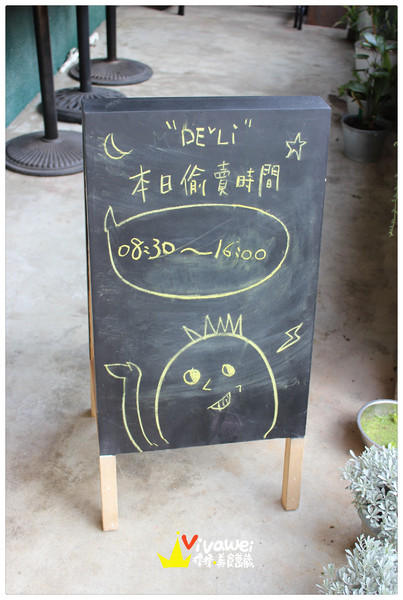 "DEVLi"
本日偷賣時間
08:30～16:00
Vivawei